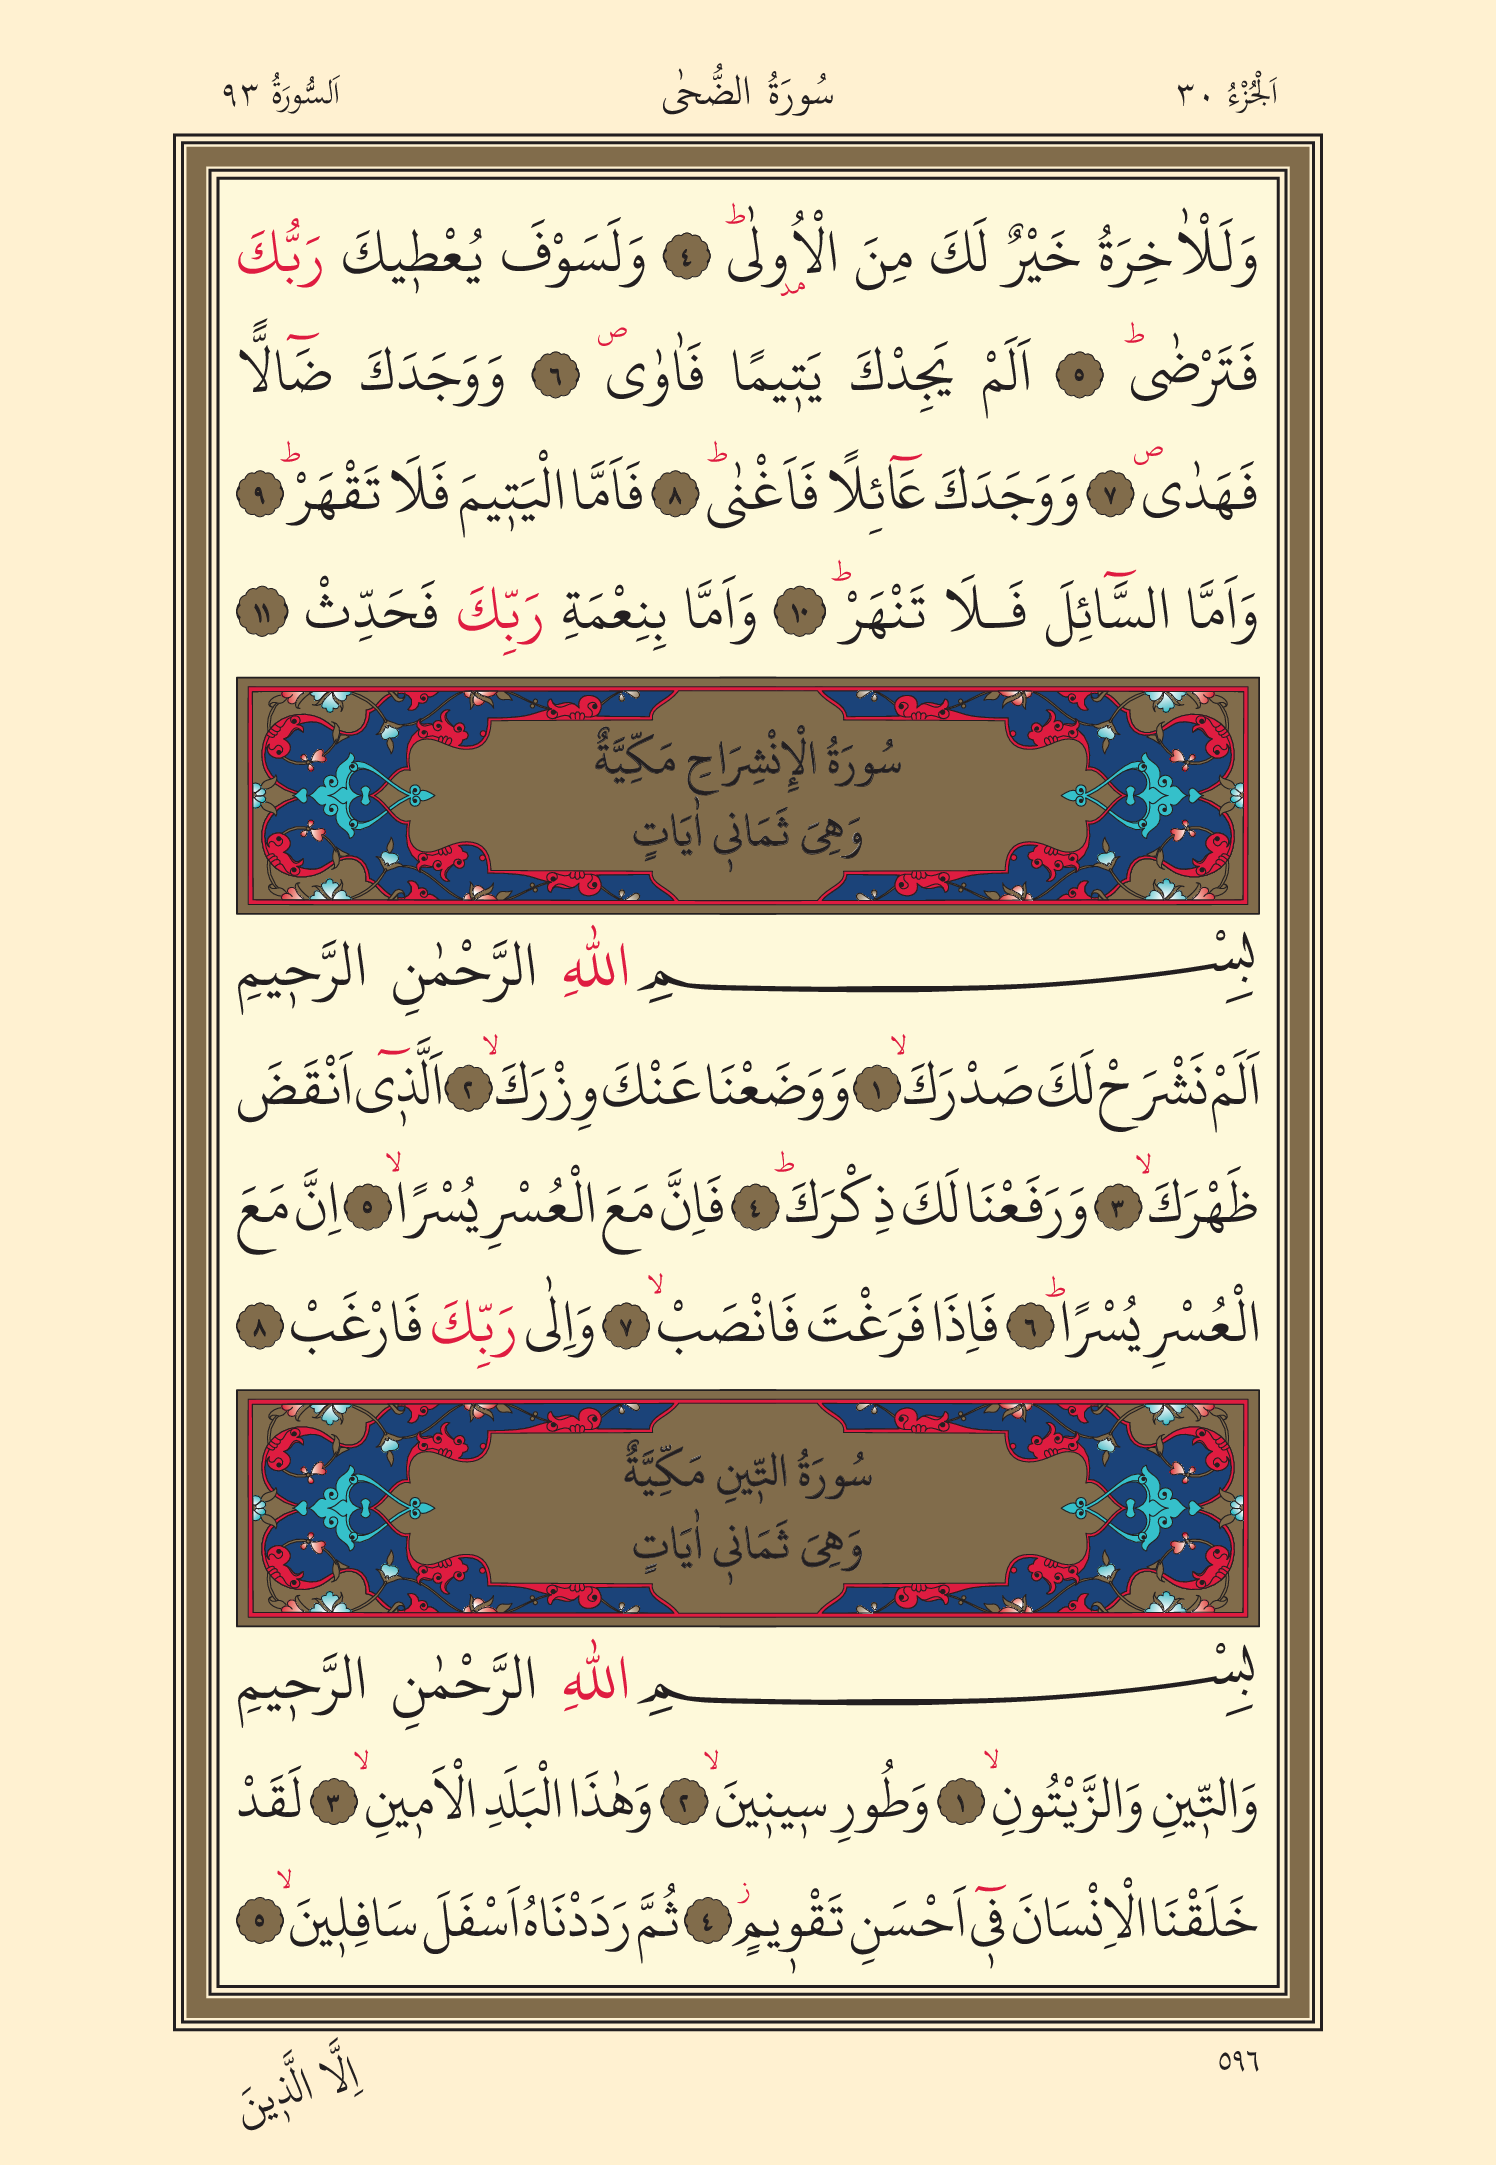 اَلْجُزْءُ ٣٠ سُورَةُ الضُّحٰى اَلسُّورَةُ ٩٣
وَلَلْاٰخِرَةُ خَيْرٌ لَكَ مِنَ الْاُو۫لٰىۜ ﴿٤﴾ وَلَسَوْفَ يُعْط۪يكَ رَبُّكَ
فَتَرْضٰىۜ ﴿٥﴾ اَلَمْ يَجِدْكَ يَت۪يمًا فَاٰوٰىۖ ﴿٦﴾ وَوَجَدَكَ ضَٓالًّا
فَهَدٰىۖ ﴿٧﴾ وَوَجَدَكَ عَٓائِلًا فَاَغْنٰىۜ ﴿٨﴾ فَاَمَّا الْيَت۪يمَ فَلَا تَقْهَرْۜ ﴿٩﴾
وَاَمَّا السَّٓائِلَ فَلَا تَنْهَرْۜ ﴿١٠﴾ وَاَمَّا بِنِعْمَةِ رَبِّكَ فَحَدِّثْ ﴿١١﴾
سُورَةُ الْإِنْشِرَاحِ مَكِّيَّةٌ
وَهِيَ ثَمَان۪ي اٰيَاتٍ
بِسْمِ اللّٰهِ الرَّحْمٰنِ الرَّح۪يمِ
اَلَمْ نَشْرَحْ لَكَ صَدْرَكَۙ ﴿١﴾ وَوَضَعْنَا عَنْكَ وِزْرَكَۙ ﴿٢﴾ اَلَّذ۪ٓى اَنْقَضَ
ظَهْرَكَۙ ﴿٣﴾ وَرَفَعْنَا لَكَ ذِكْرَكَۜ ﴿٤﴾ فَاِنَّ مَعَ الْعُسْرِ يُسْرًاۙ ﴿٥﴾ اِنَّ مَعَ
الْعُسْرِ يُسْرًاۜ ﴿٦﴾ فَاِذَا فَرَغْتَ فَانْصَبْۙ ﴿٧﴾ وَاِلٰى رَبِّكَ فَارْغَبْ ﴿٨﴾
سُورَةُ التّ۪ينِ مَكِّيَّةٌ
وَهِيَ ثَمَان۪ي اٰيَاتٍ
بِسْمِ اللّٰهِ الرَّحْمٰنِ الرَّح۪يمِ
وَالتّ۪ينِ وَالزَّيْتُونِۙ ﴿١﴾ وَطُورِ س۪ين۪ينَۙ ﴿٢﴾ وَهٰذَا الْبَلَدِ الْاَم۪ينِۙ ﴿٣﴾ لَقَدْ
خَلَقْنَا الْاِنْسَانَ ف۪ٓى اَحْسَنِ تَقْو۪يمٍۘ ﴿٤﴾ ثُمَّ رَدَدْنَاهُ اَسْفَلَ سَافِل۪ينَۙ ﴿٥﴾
٥٩٦
اِلَّا الَّذ۪ينَ